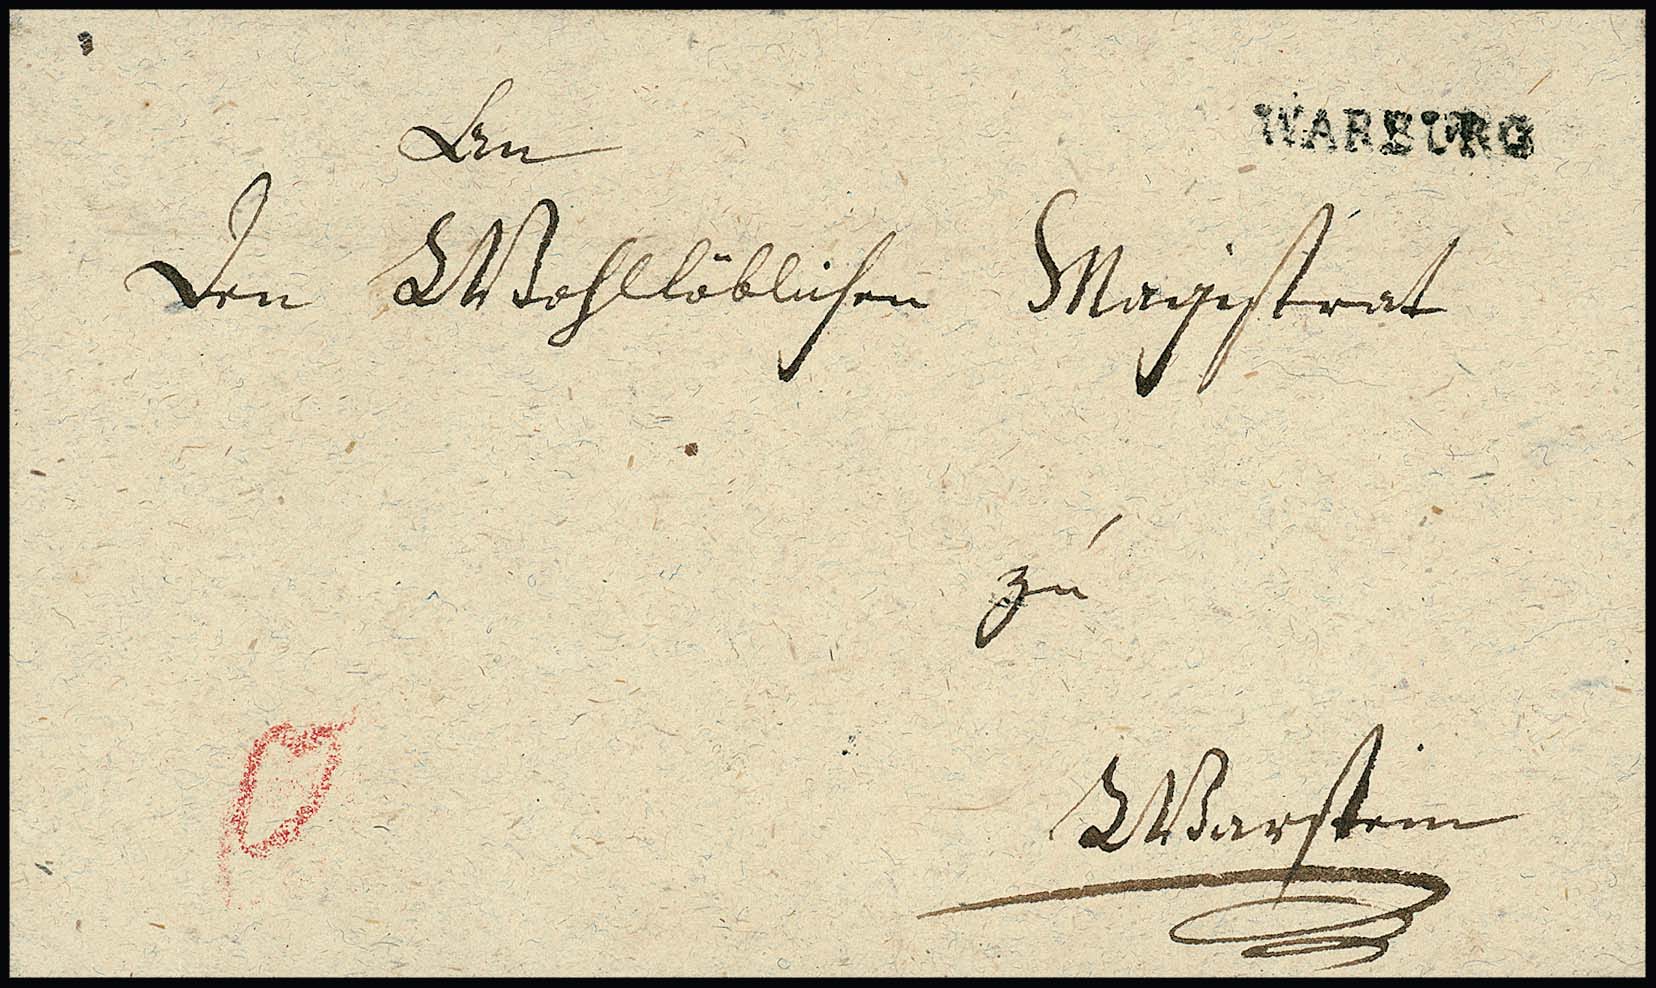 WARBURG
An
Den Wohllöblichen Magistrat
zu
Warstein